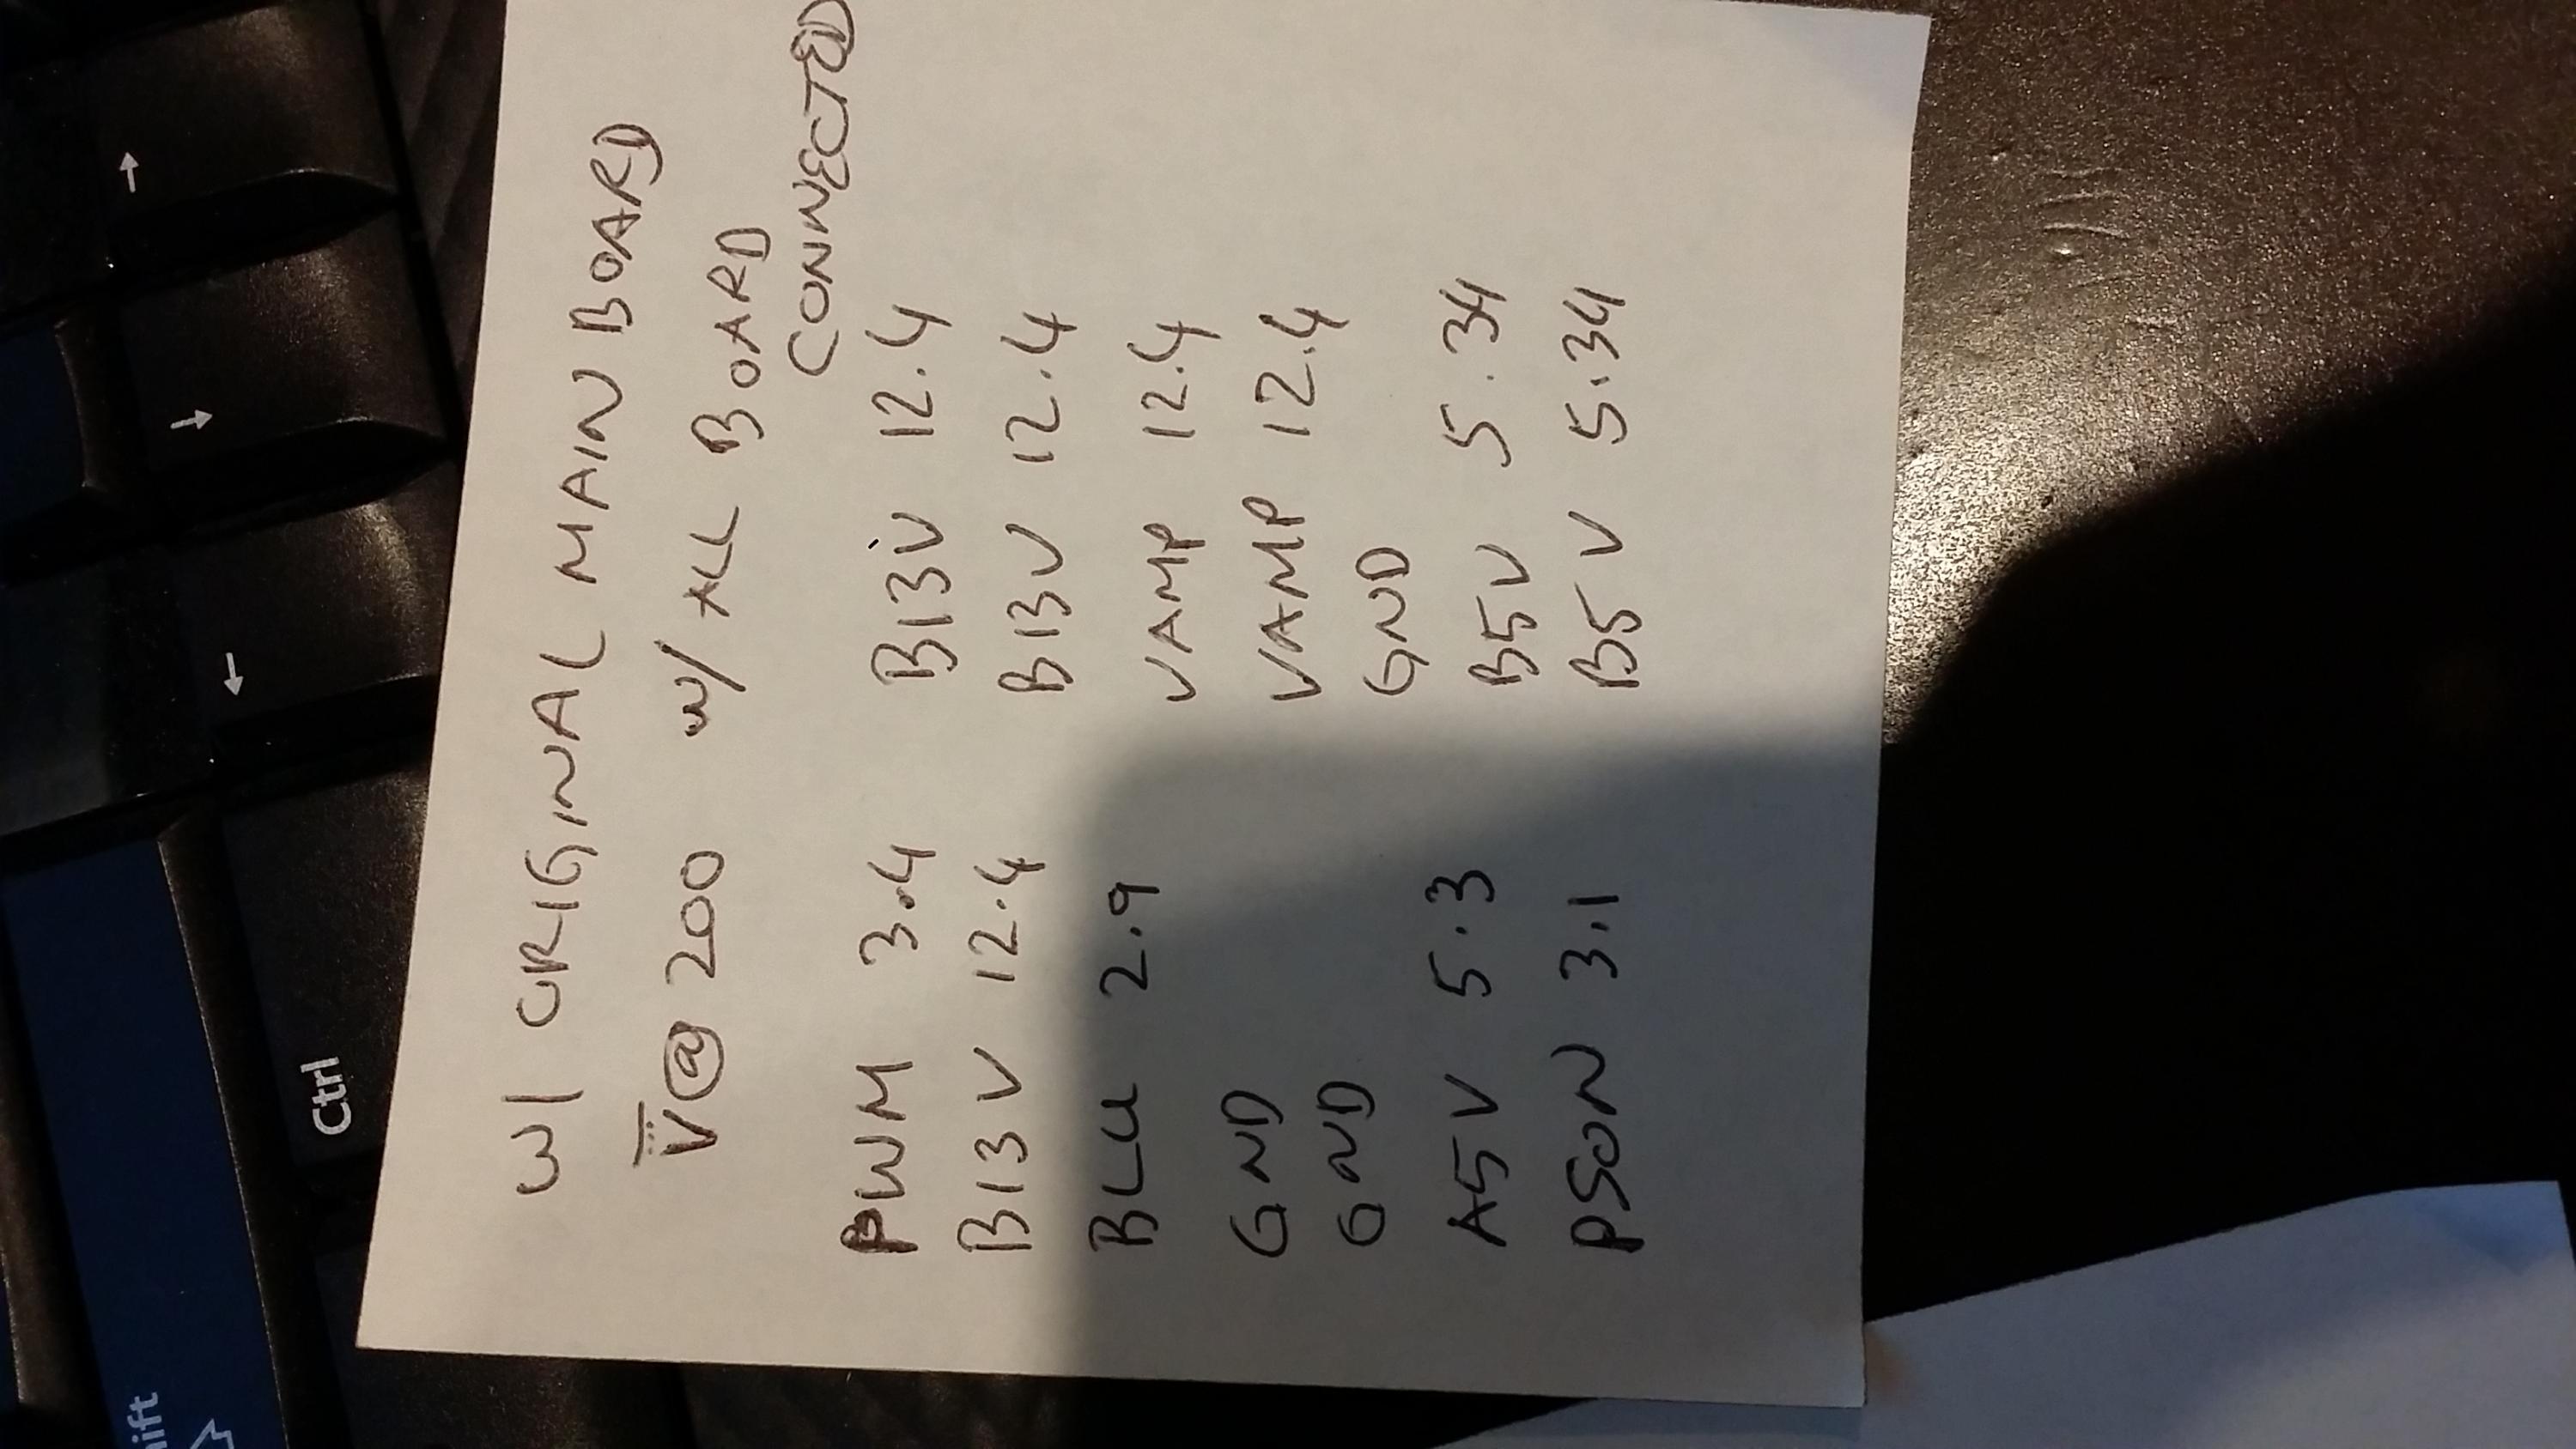 W/ ORIGINAL MAIN BOARD
V@ 200 W/ ALL BOARD
CONNECTED
PWM 3.4 B13V 12.4
B13V 12.4 B13V 12.4
BLU 2.9 VAMP 12.4
GND VAMP 12.4
GND GND
A5V 5.3 B5V 5.34
PSON 3.1 B5V 5.34
Ctrl
ift